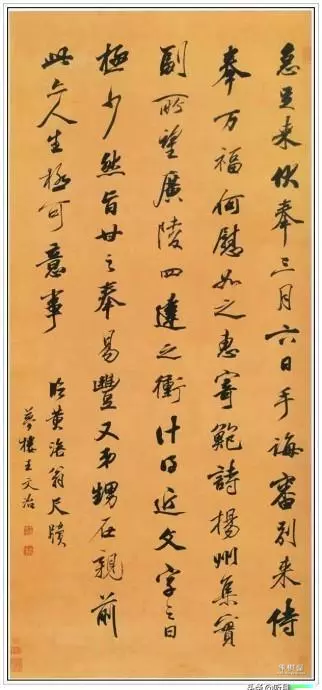 急足来伏奉三月六日手诲審别来侍
奉万福何慰如之惠寄鲍詩揚州集實
副所望廣陵四達之衝计得近文字之日
極少然旨甘之奉易豐又弟甥在親前
此亦人生極可意事
临黄涪翁尺牘
夢樓王文治